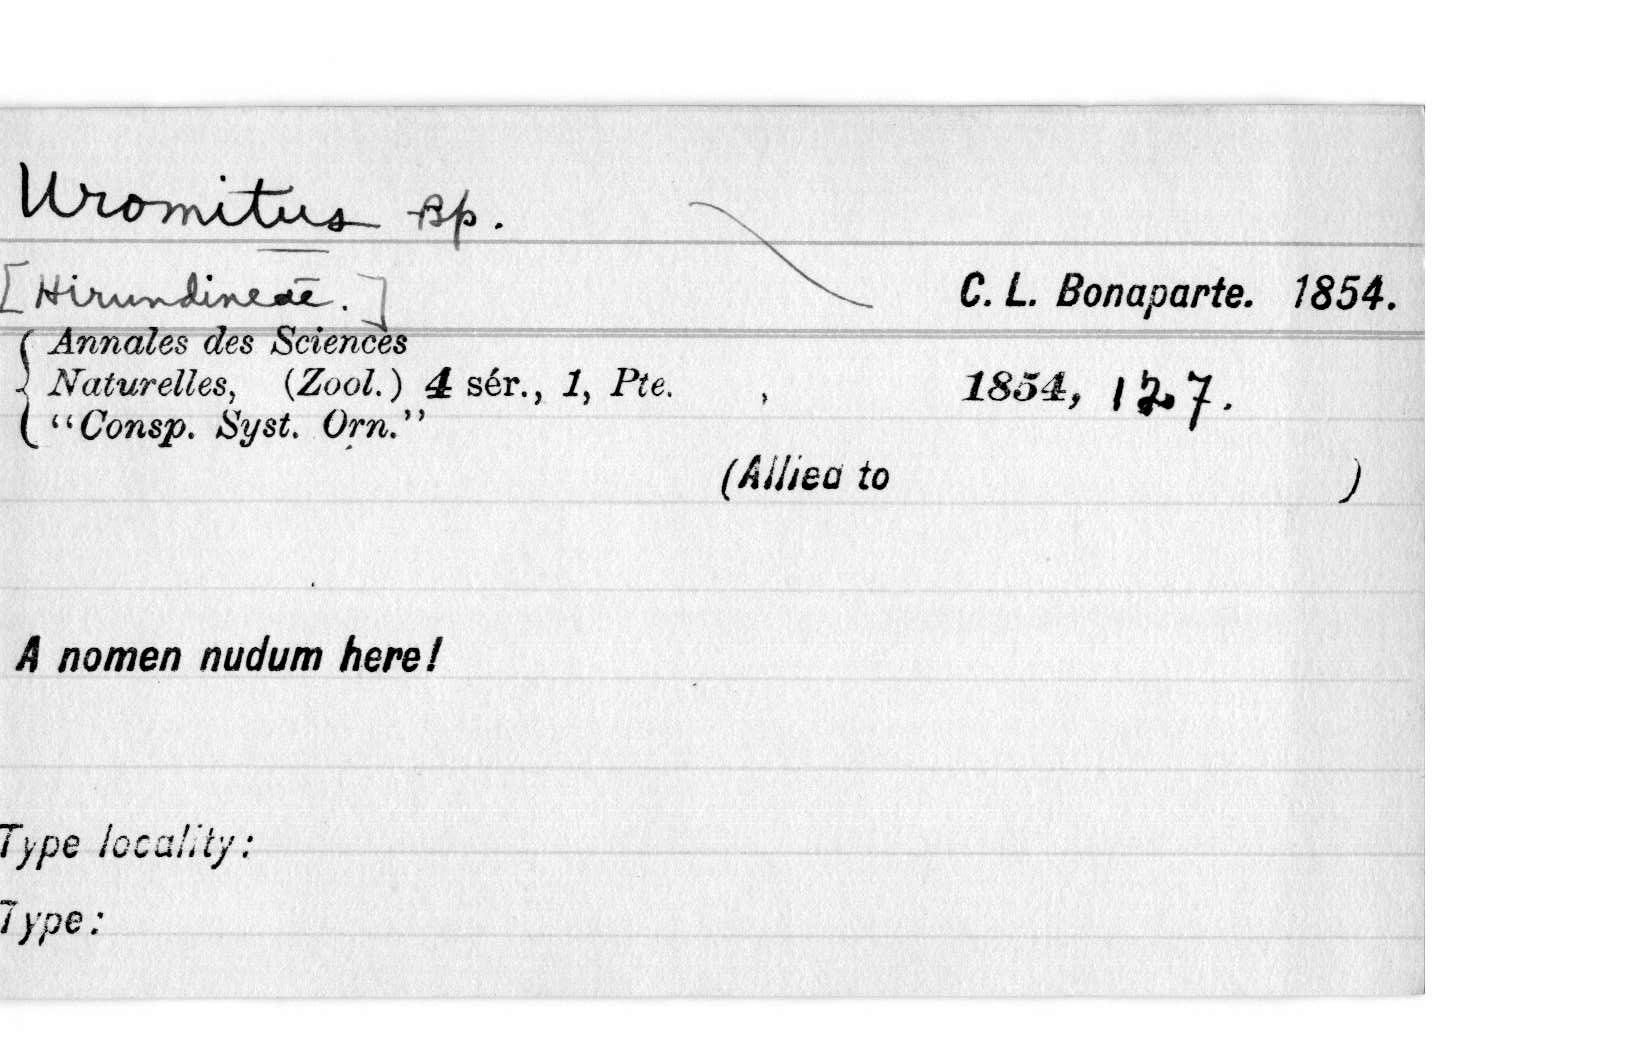 Uromitus Bp.
[Hirundineae.] C. L. Bonaparte. 1854.
Annales des Sciences
Naturelles, (Zool.) 4 sér., 1, Pte. , 1854, 127.
"Consp. Syst. Orn."
(Allied to )
A nomen nudum here!
Type locality:
Type: